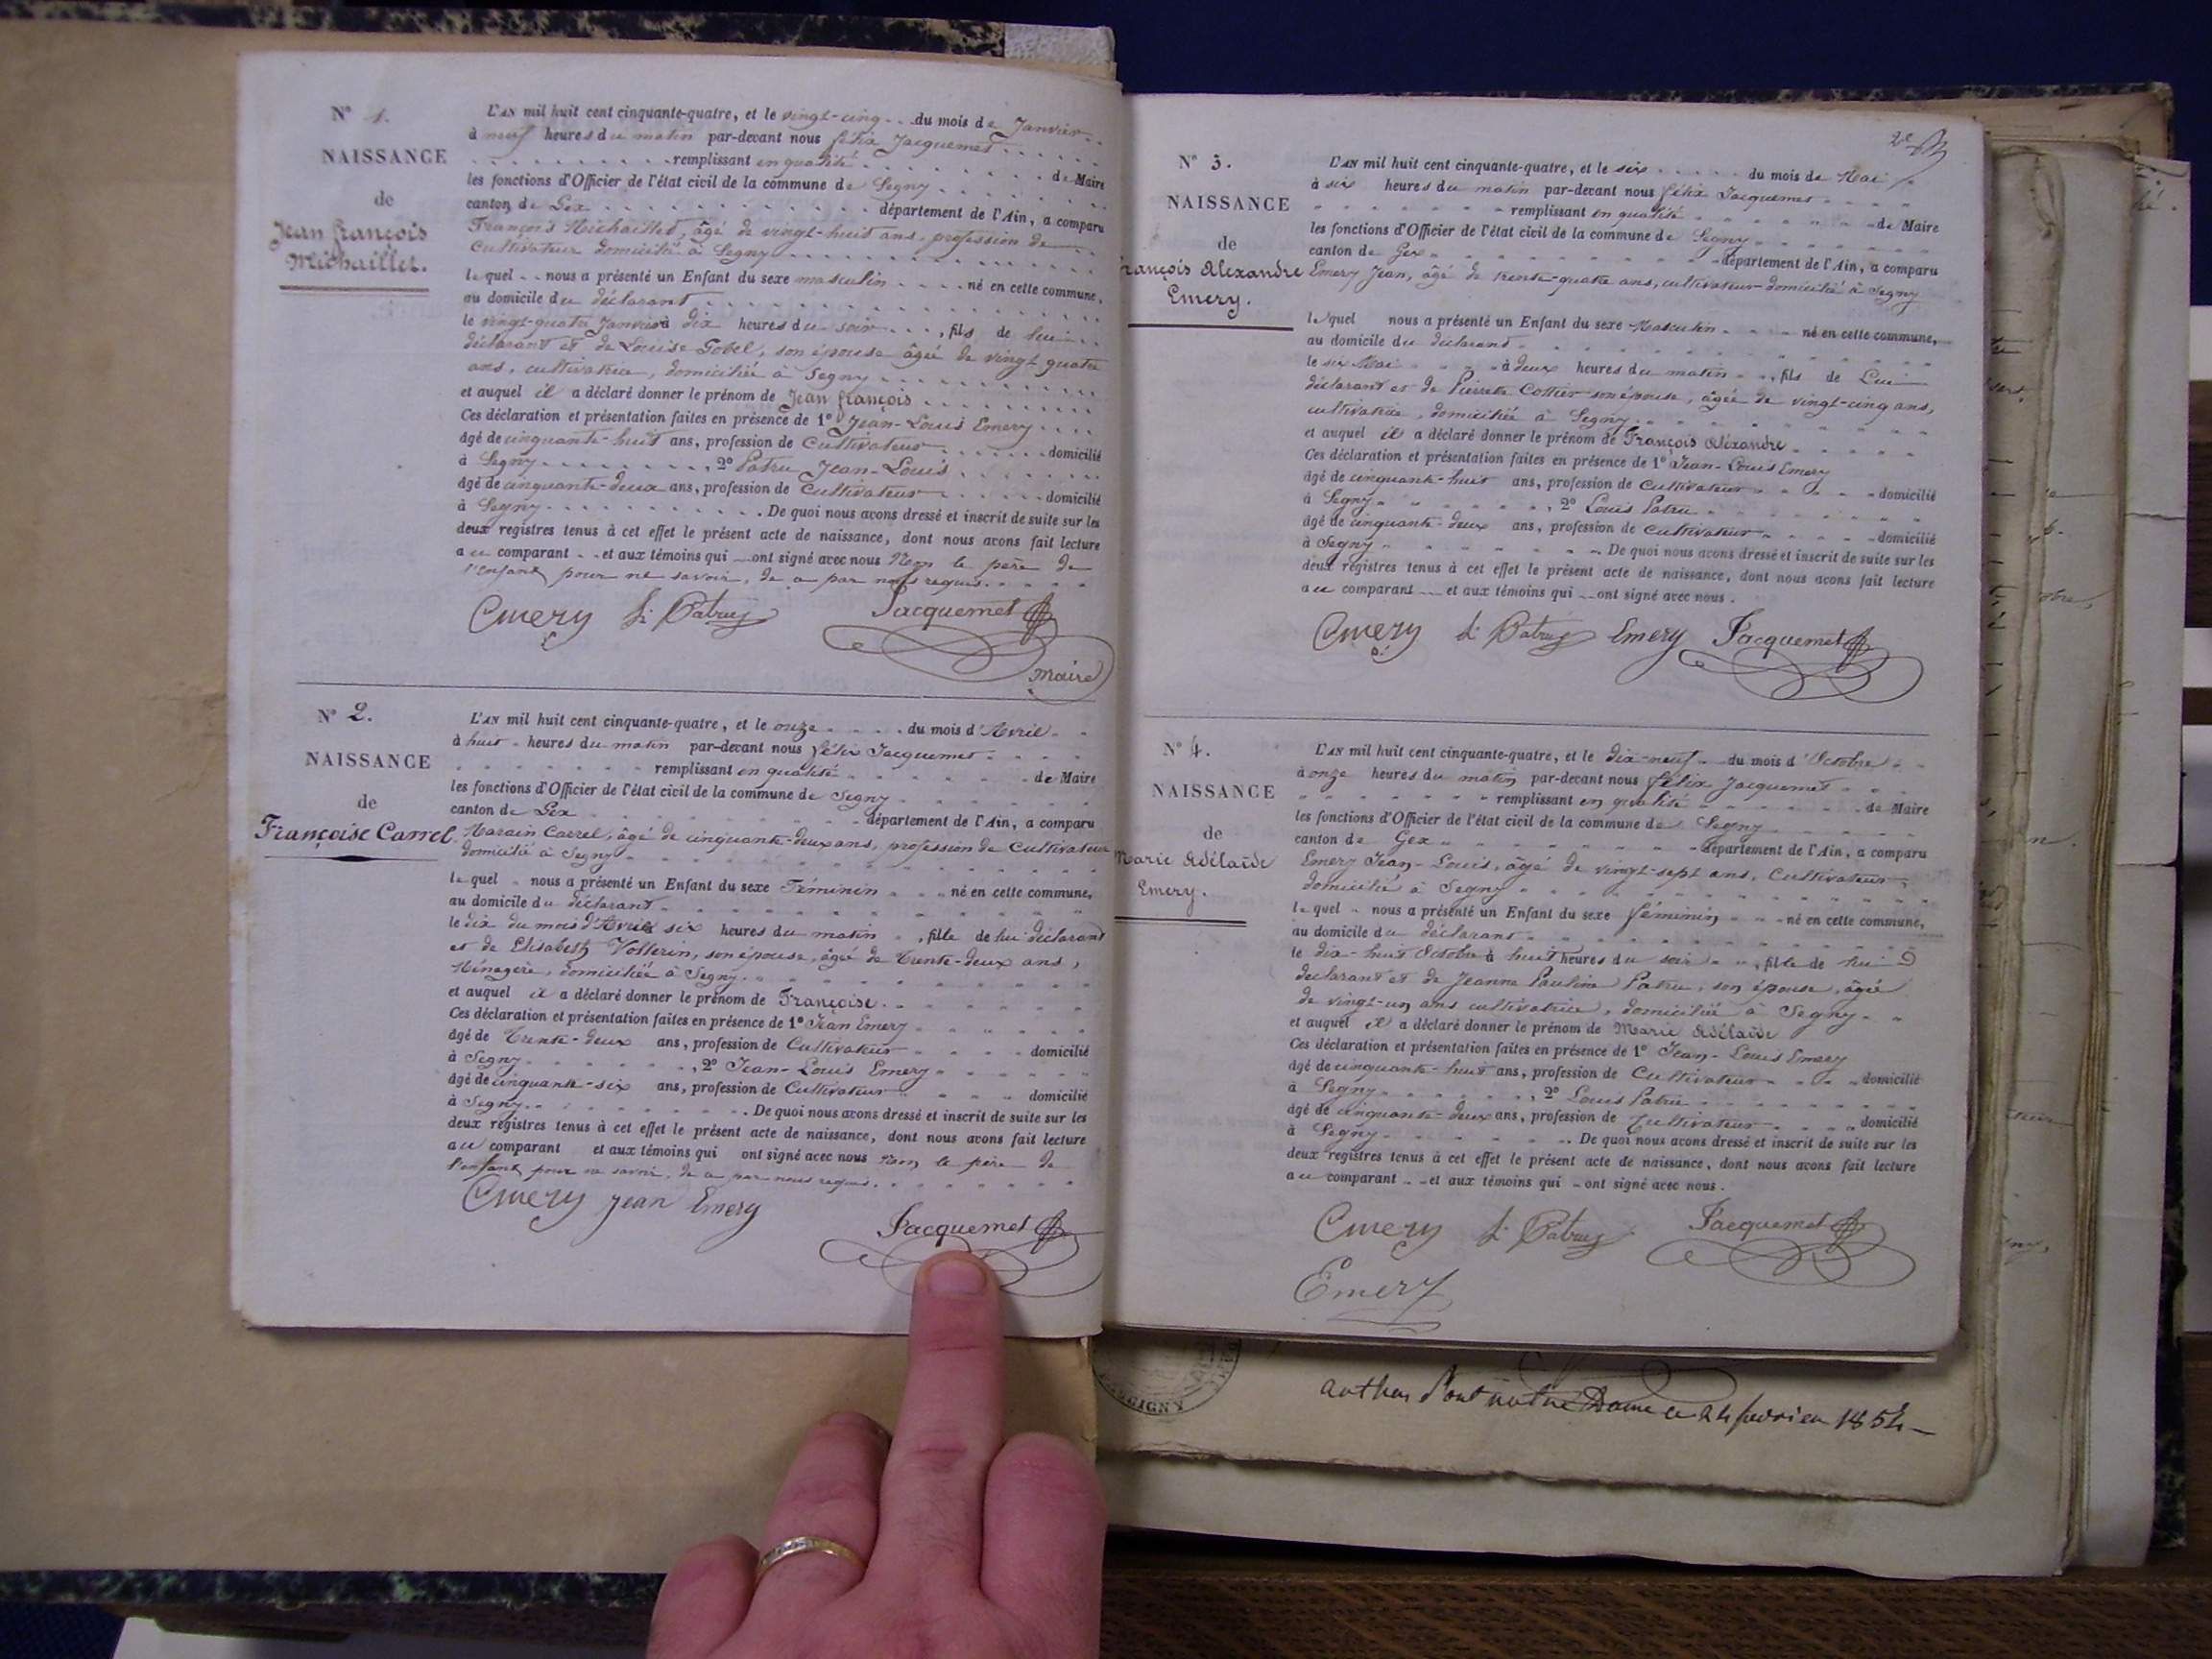 N° 1.
NAISSANCE
de
Jean François
Michaillet.
L'AN mil huit cent cinquante-quatre, et le vingt-cinq du mois de Janvier
à neuf heures du matin par-devant nous félix Jacquemet
remplissant en qualité de Maire
les fonctions d'Officier de l'état civil de la commune de Segny
canton de Gex département de l'Ain, a comparu
François Michaillet, âgé de vingt-huit ans, profession de
Cultivateur domicilié à Segny
lequel nous a présenté un Enfant du sexe masculin né en cette commune,
au domicile du déclarant
le vingt-quatre Janvier à dix heures du soir, fils de lui
déclarant et de Louise Gobel, son épouse âgée de vingt quatre
ans, cultivatrice, domiciliée à Segny
et auquel il a déclaré donner le prénom de Jean françois
Ces déclaration et présentation faites en présence de 1° Jean-Louis Emery
âgé de cinquante-huit ans, profession de Cultivateur domicilié
à Segny, 2° Patru Jean-Louis
âgé de cinquante-deux ans, profession de Cultivateur domicilié
à Segny. De quoi nous avons dressé et inscrit de suite sur les
deux registres tenus à cet effet le présent acte de naissance, dont nous avons fait lecture
au comparant et aux témoins qui ont signé avec nous Non le père de
l'enfant pour ne savoir, de ce par nous requis.
Emery L. Patru Jacquemet
Maire
N° 2.
NAISSANCE
de
Françoise Carrel.
L'AN mil huit cent cinquante-quatre, et le onze du mois d'Avril
à huit heures du matin par-devant nous félix Jacquemet
remplissant en qualité de Maire
les fonctions d'Officier de l'état civil de la commune de Segny
canton de Gex département de l'Ain, a comparu
Carrel, âgé de cinquante-deux ans, profession de Cultivateur
domicilié à Segny
lequel nous a présenté un Enfant du sexe Féminin né en cette commune,
au domicile du déclarant
le dix du mois d'Avril six heures du matin, fille de lui déclarant
et de Elisabeth Vollerin, son épouse, âgée de trente-deux ans,
Ménagère, domiciliée à Segny.
et auquel il a déclaré donner le prénom de Françoise.
Ces déclaration et présentation faites en présence de 1° Jean Emery
âgé de trente-deux ans, profession de Cultivateur domicilié
à Segny, 2° Jean-Louis Emery
âgé de cinquante-six ans, profession de Cultivateur domicilié
à Segny. De quoi nous avons dressé et inscrit de suite sur les
deux registres tenus à cet effet le présent acte de naissance, dont nous avons fait lecture
au comparant et aux témoins qui ont signé avec nous Non le père de
l'enfant pour ne savoir, de ce par nous requis.
Emery Jean Emery
Jacquemet
N° 3.
NAISSANCE
de
François Alexandre
Emery.
L'AN mil huit cent cinquante-quatre, et le six du mois de Mai
à six heures du matin par-devant nous félix Jacquemet
remplissant en qualité de Maire
les fonctions d'Officier de l'état civil de la commune de Segny
canton de Gex département de l'Ain, a comparu
Emery Jean, âgé de trente-quatre ans, cultivateur domicilié à Segny
lequel nous a présenté un Enfant du sexe Masculin né en cette commune,
au domicile du déclarant
le six Mai à deux heures du matin, fils de Lui
déclarant et de Pierrette Cottier son épouse, âgée de vingt-cinq ans,
cultivatrice, domiciliée à Segny.
et auquel il a déclaré donner le prénom de François Alexandre
Ces déclaration et présentation faites en présence de 1° Jean-Louis Emery
âgé de cinquante-huit ans, profession de Cultivateur domicilié
à Segny, 2° Louis Patru
âgé de cinquante-deux ans, profession de cultivateur domicilié
à Segny. De quoi nous avons dressé et inscrit de suite sur les
deux registres tenus à cet effet le présent acte de naissance, dont nous avons fait lecture
au comparant et aux témoins qui ont signé avec nous.
Emery L. Patru Emery Jacquemet
N° 4.
NAISSANCE
de
Marie Adélaïde
Emery.
L'AN mil huit cent cinquante-quatre, et le dix-neuf du mois d'Octobre
à onze heures du matin par-devant nous félix Jacquemet
remplissant en qualité de Maire
les fonctions d'Officier de l'état civil de la commune de Segny
canton de Gex département de l'Ain, a comparu
Emery Jean-Louis, âgé de vingt-sept ans, Cultivateur,
domicilié à Segny
lequel nous a présenté un Enfant du sexe féminin né en cette commune,
au domicile du déclarant
le dix-huit Octobre à huit heures du soir, fille de lui
déclarant et de Jeanne Pauline Patru, son épouse, âgée
de vingt-un ans cultivatrice, domiciliée à Segny
et auquel il a déclaré donner le prénom de Marie Adélaïde
Ces déclaration et présentation faites en présence de 1° Jean-Louis Emery
âgé de cinquante-huit ans, profession de Cultivateur domicilié
à Segny, 2° Louis Patru
âgé de cinquante-deux ans, profession de Cultivateur domicilié
à Segny. De quoi nous avons dressé et inscrit de suite sur les
deux registres tenus à cet effet le présent acte de naissance, dont nous avons fait lecture
au comparant et aux témoins qui ont signé avec nous.
Emery L. Patru Jacquemet
Emery
1854